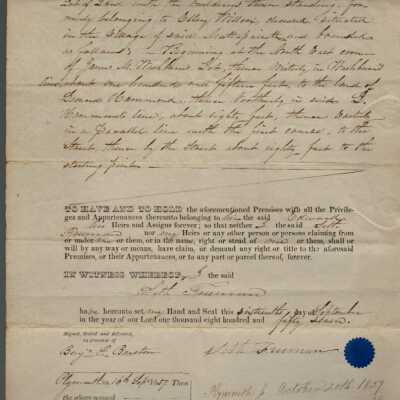 Lot of Land with the buildings thereon standing, for-
merly belonging to Ellery Willson, deceased situated
in the village of said Mattapoisett and bounded
as follows; Beginning at the North East corner
of James M. Wilbur's Lot, thence Westerly in
line about one hundred and fifteen feet, to the land of
Hammond, thence Northerly in said
Hammond's line, about eighty feet, thence Easterly
in a Parallel line with the first course, to the
Street, thence by the Street about eighty feet to the
starting point
TO HAVE AND TO HOLD the aforementioned Premises with all the Privile-
ges and Appurtenances thereunto belonging to him the said
his Heirs and Assigns forever; so that neither I the said Seth
Freeman nor my Heirs or any other person or persons claiming from
or under me or them, or in the name, right or stead of me or them, shall or
will by any way or means, have claim, or demand any right or title to the aforesaid
Premises, or their Appurtenances, or to any part or parcel thereof, forever.
IN WITNESS WHEREOF, I the said
Seth Freeman
have hereunto set my Hand and Seal this Sixteenth day of September
in the year of our Lord one thousand eight hundred and fifty seven.
Signed, Sealed and delivered,
in presence of
Benj. Barstow
Seth Freeman
Plymouth 16th Sep. 1857 Then
the above named
Plymouth ss October 20th 1857